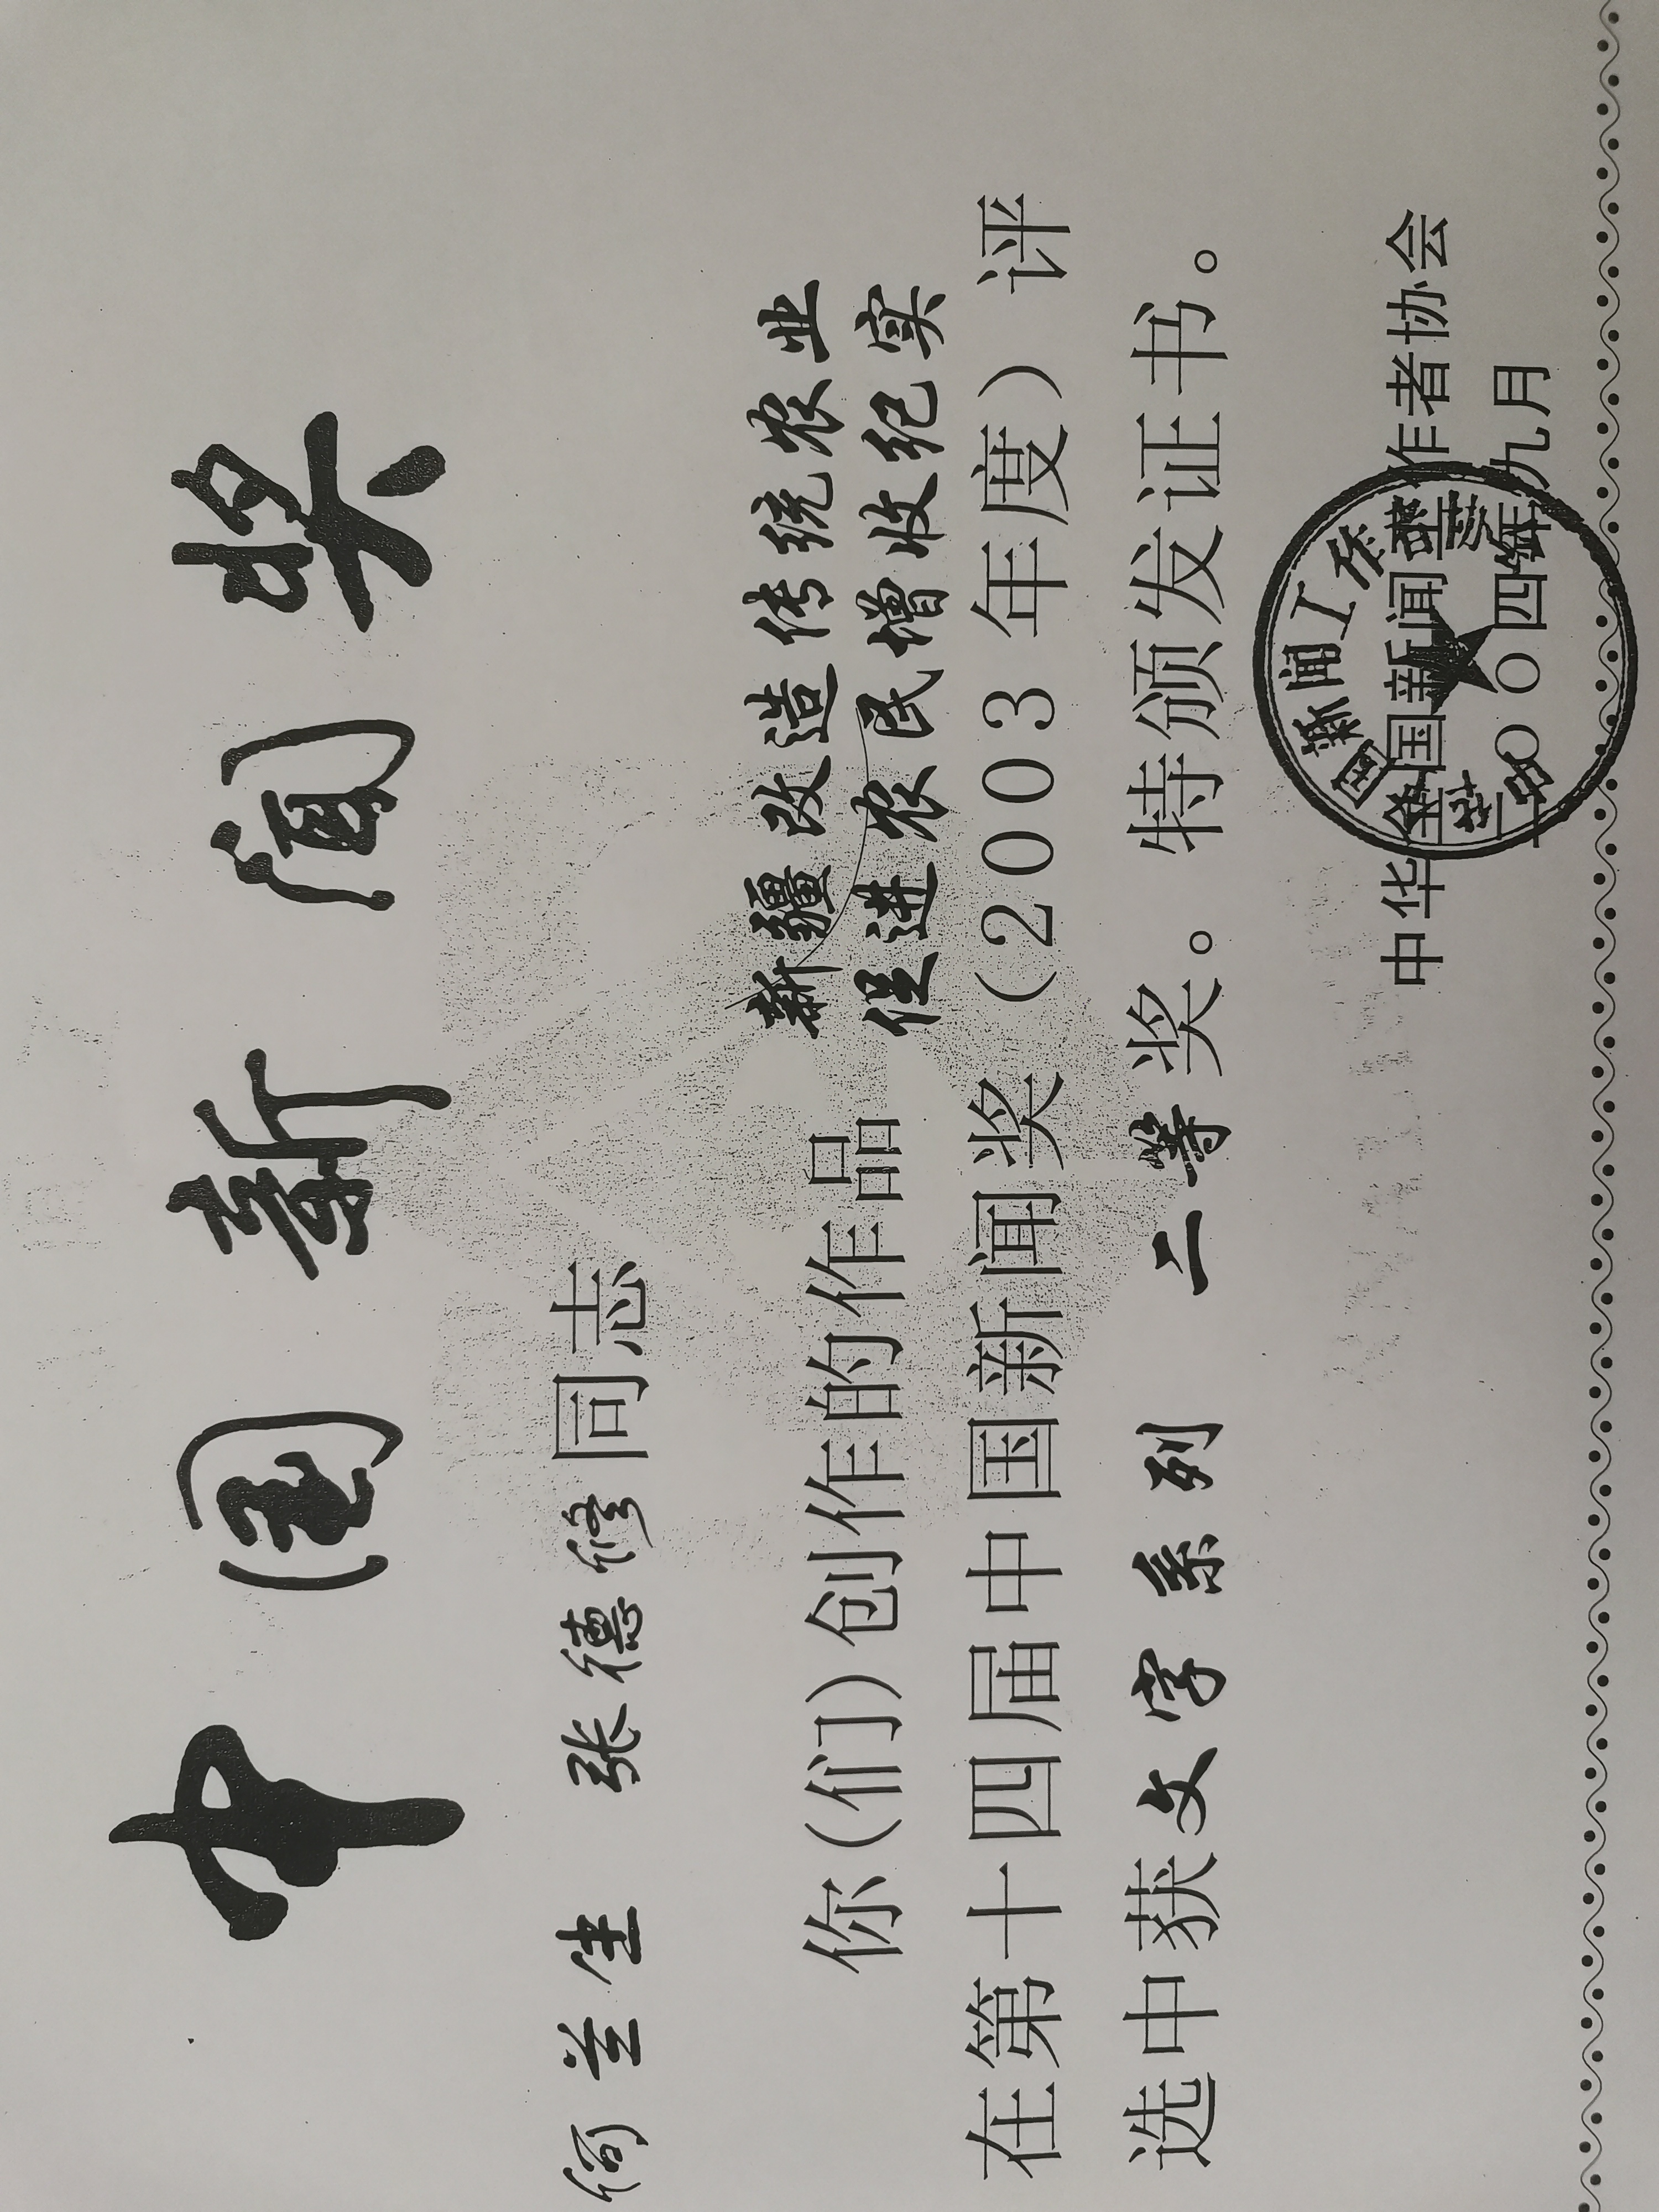 中国新闻奖
何兰生 张德修同志
你(们)创作的作品
新疆改造传统农业
促进农民增收纪实
在第十四届中国新闻奖(2003年度)评
选中获文字系列 二等奖。特颁发证书。
中华全国新闻工作者协会
二〇〇四年九月